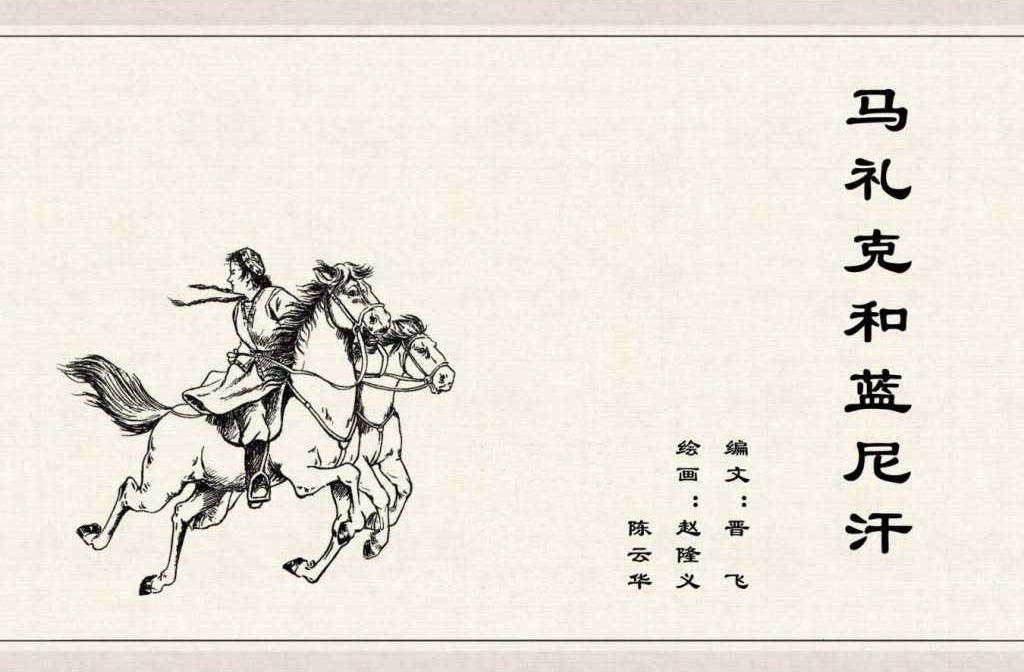 马礼克和蓝尼汗
编文：晋飞
绘画：赵隆义
陈云华